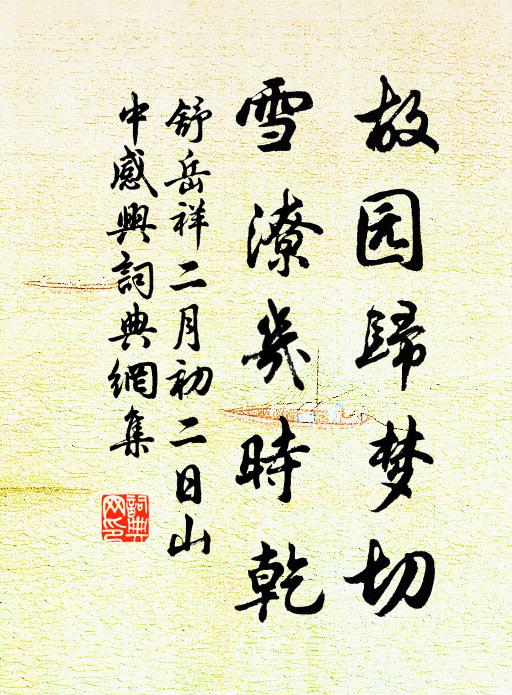 故园歸梦切
雪潦幾時乾
舒岳祥二月初二日山
中感興詞典網集
詞典
网印